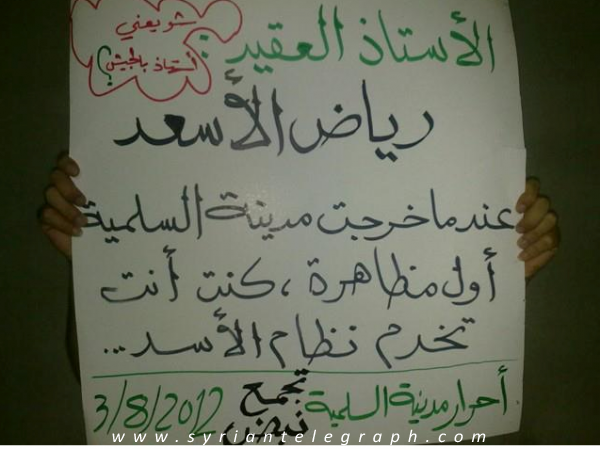 شو يعني
أستاذ بالجيش؟
الأستاذ العقيد:
رياض الأسعد
عندما خرجت مدينة السلمية
أول مظاهرة، كنت أنت
تخدم نظام الأسد...
أحرار مدينة السلمية تجمع نبض 3/8/2012
www.syriantelegraph.com